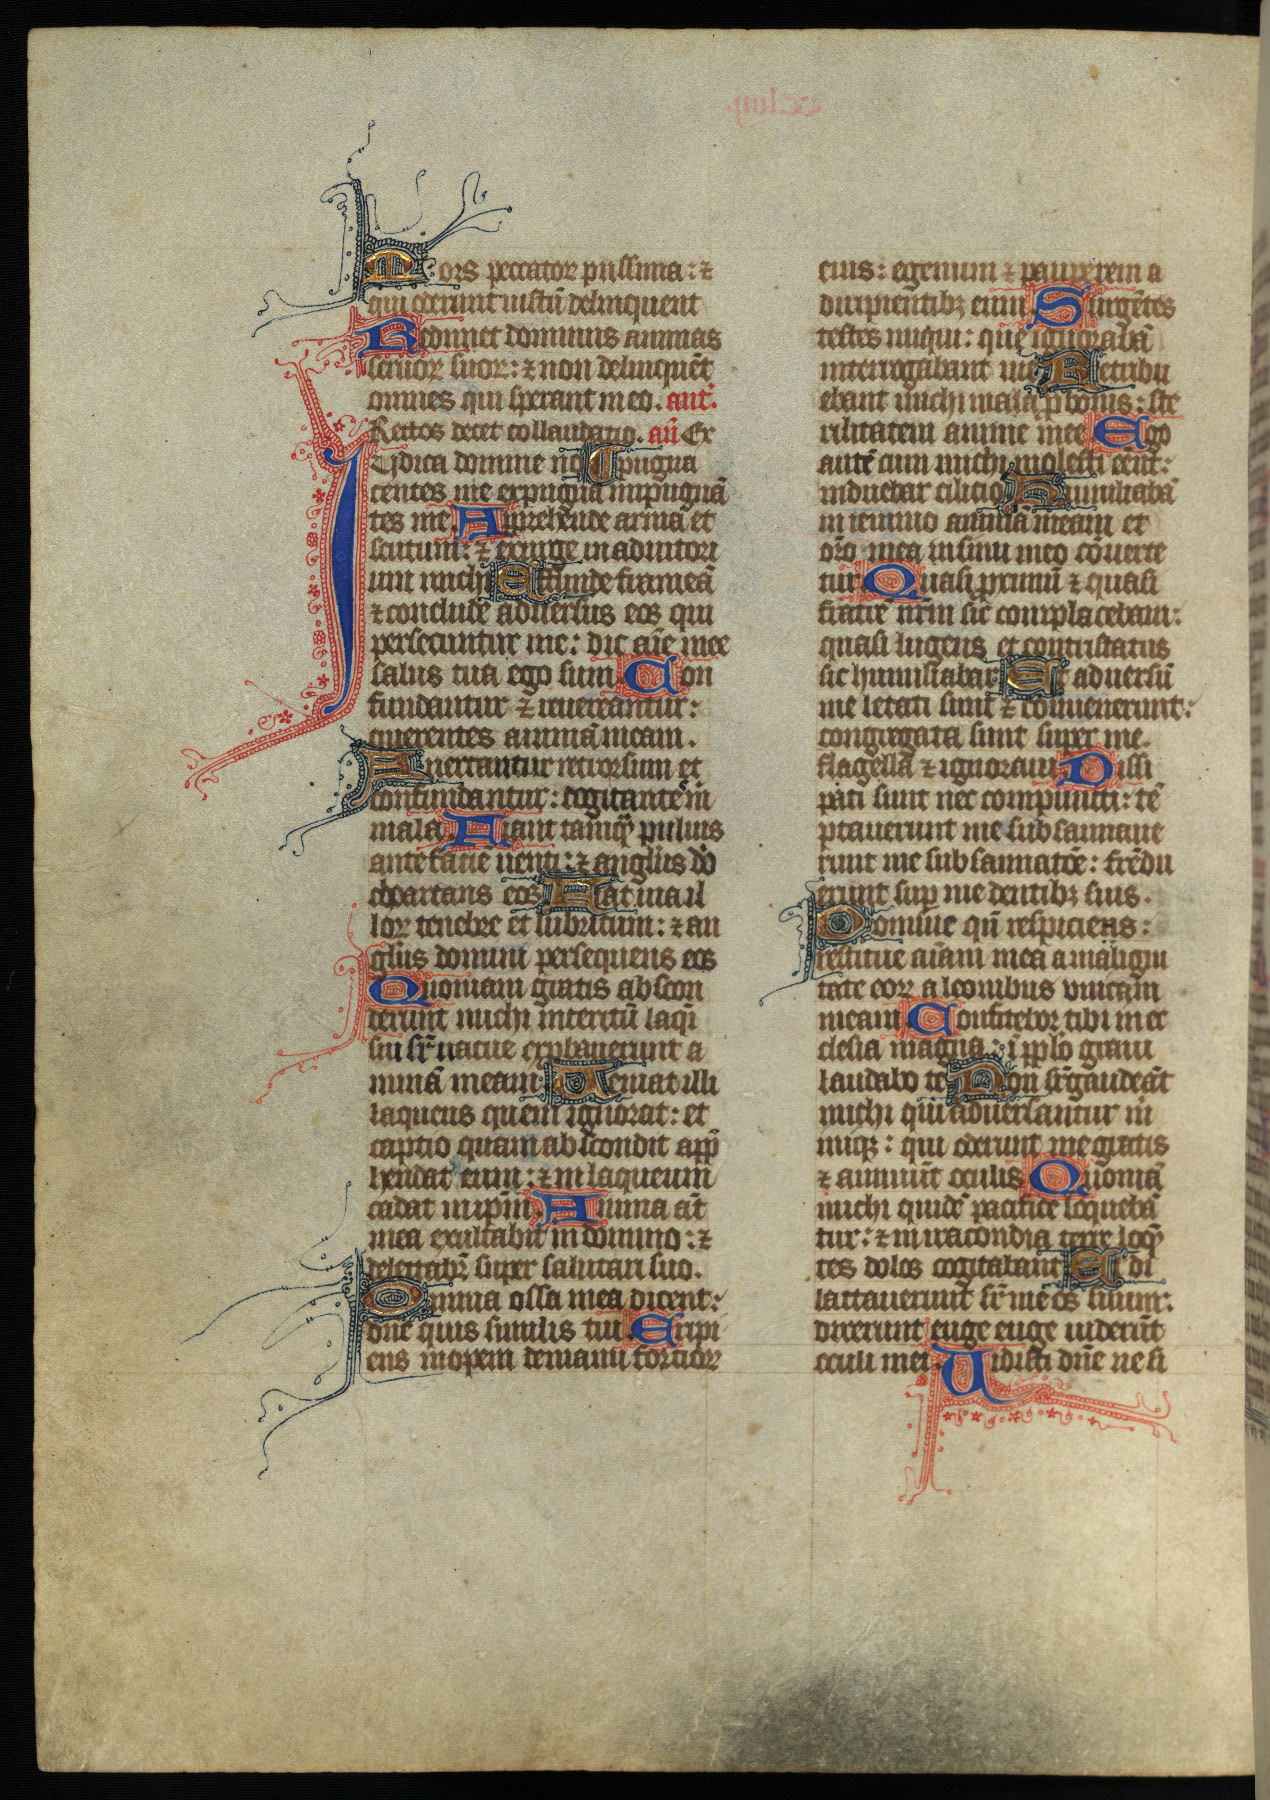 Mors peccatoꝝ pessima: ⁊
qui oderunt iustū delinquent
Redimet dominus animas
seruoꝝ suoꝝ: ⁊ non delinquēt
omnes qui sperant in eo. ant.
Rectos decet collaudatio. an̄ Ex
Iudica domine no Expugna
centes me expugna inpugnā
tes me. Apprehende arma et
scutum: ⁊ exurge in adiutori
um michi Effunde frameā
⁊ conclude aduersus eos qui
persecuntur me: dic aīe mee
salus tua ego sum. Con
fundantur ⁊ reuereantur:
querentes animā meam.
Auertantur retrorsum et
confundantur: cogitantes m̄
mala. Fiant tamqͣ puluis
ante faciē uenti: ⁊ angl̄us dn̄i
choartans eos Fiat uia il
loꝝ tenebre et lubricum: ⁊ an
gl̄us domini persequens eos
Quoniam gratis abscon
derunt michi interitū laq̄i
sui sr̄ uacue exprobauerunt a
nimā meam. Ueniat illi
laqueus quem ignorat: et
captio quam abscondit app̄
hendat eum: ⁊ in laqueum
cadat in ip̄m. Anima aūt
mea exultabit in domino: ⁊
delectabr̄ super salutari suo.
Omnia ossa mea dicent:
dn̄e quis similis tui Eripi
ens inopem de manu fortioꝝ
eius: egenum ⁊ pauperem a
diripientibꝫ eum. Surgētes
testes iniqui: que ignorabā
interrogabant me Retribu
ebant michi mala p̄ bonis: ste
rilitatem anime mee. Ego
autē cum michi molesti eēnt:
induebar cilicio. Humiliabā
in ieiunio animā meam et
or̄o mea in sinu meo cōuerte
tur. Quasi pximū ⁊ quasi
fratrē nr̄m sic̄ complacebam:
quasi lugens et contristatus
sic humiliabar Et aduersū
me letati sunt ⁊ conuenerunt:
congregata sunt super me.
flagella ⁊ ignoraui. Dissi
pati sunt nec compuncti: tē
ptauerunt me subsannaue
runt me subsannatōe: frēdu
erunt sup me dentibꝫ suis.
Domine qn̄ respiciens:
restitue aīam mea a maligni
tate eoꝝ a leonibus vnicam
meam. Confitebor tibi in ec
clesia magna: ī pplo graui
laudabo te. Non sr̄gaudeāt
michi qui aduersantur m̄
inique: qui oderunt me gratis
⁊ annuūt oculis. Quoniā
michi quidē pacifice loquebā
tur: ⁊ in iracondia terre loqn̄
tes dolos cogitabant Et di
lattauerunt sr̄ me os suum:
dixerunt euge euge uiderūt
oculi mei. Uidisti dn̄e ne si